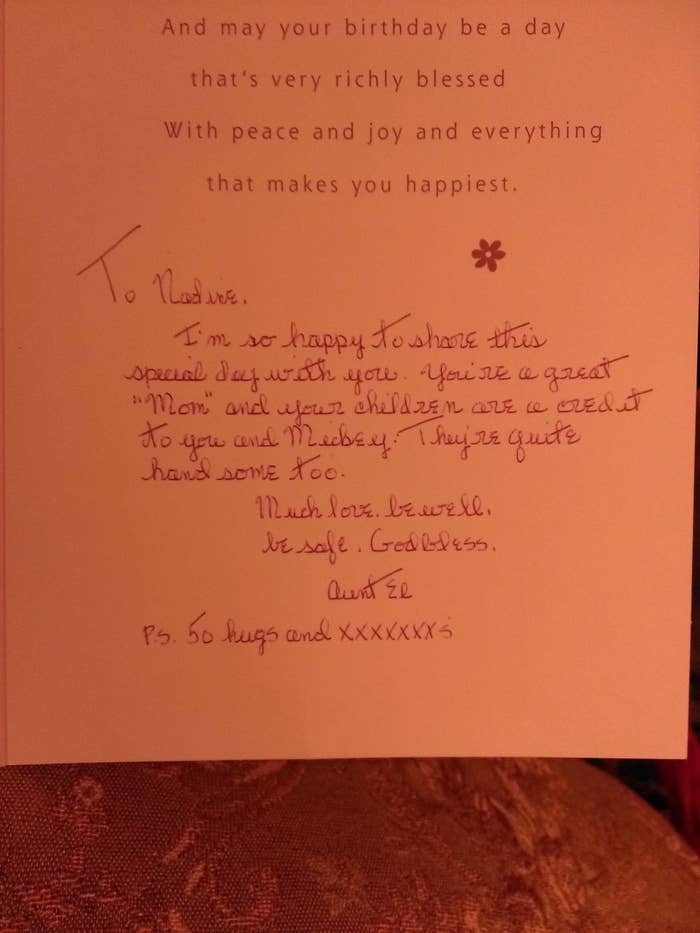 And may your birthday be a day
that's very richly blessed
With peace and joy and everything
that makes you happiest.
To Nadine.
I'm so happy to share this
special day with you. You're a great
"Mom" and your children are a credit
to you and Mickey. They're quite
handsome too.
Much love. be well.
be safe. God bless.
Aunt El
P.S. 50 hugs and xxxxxxxs